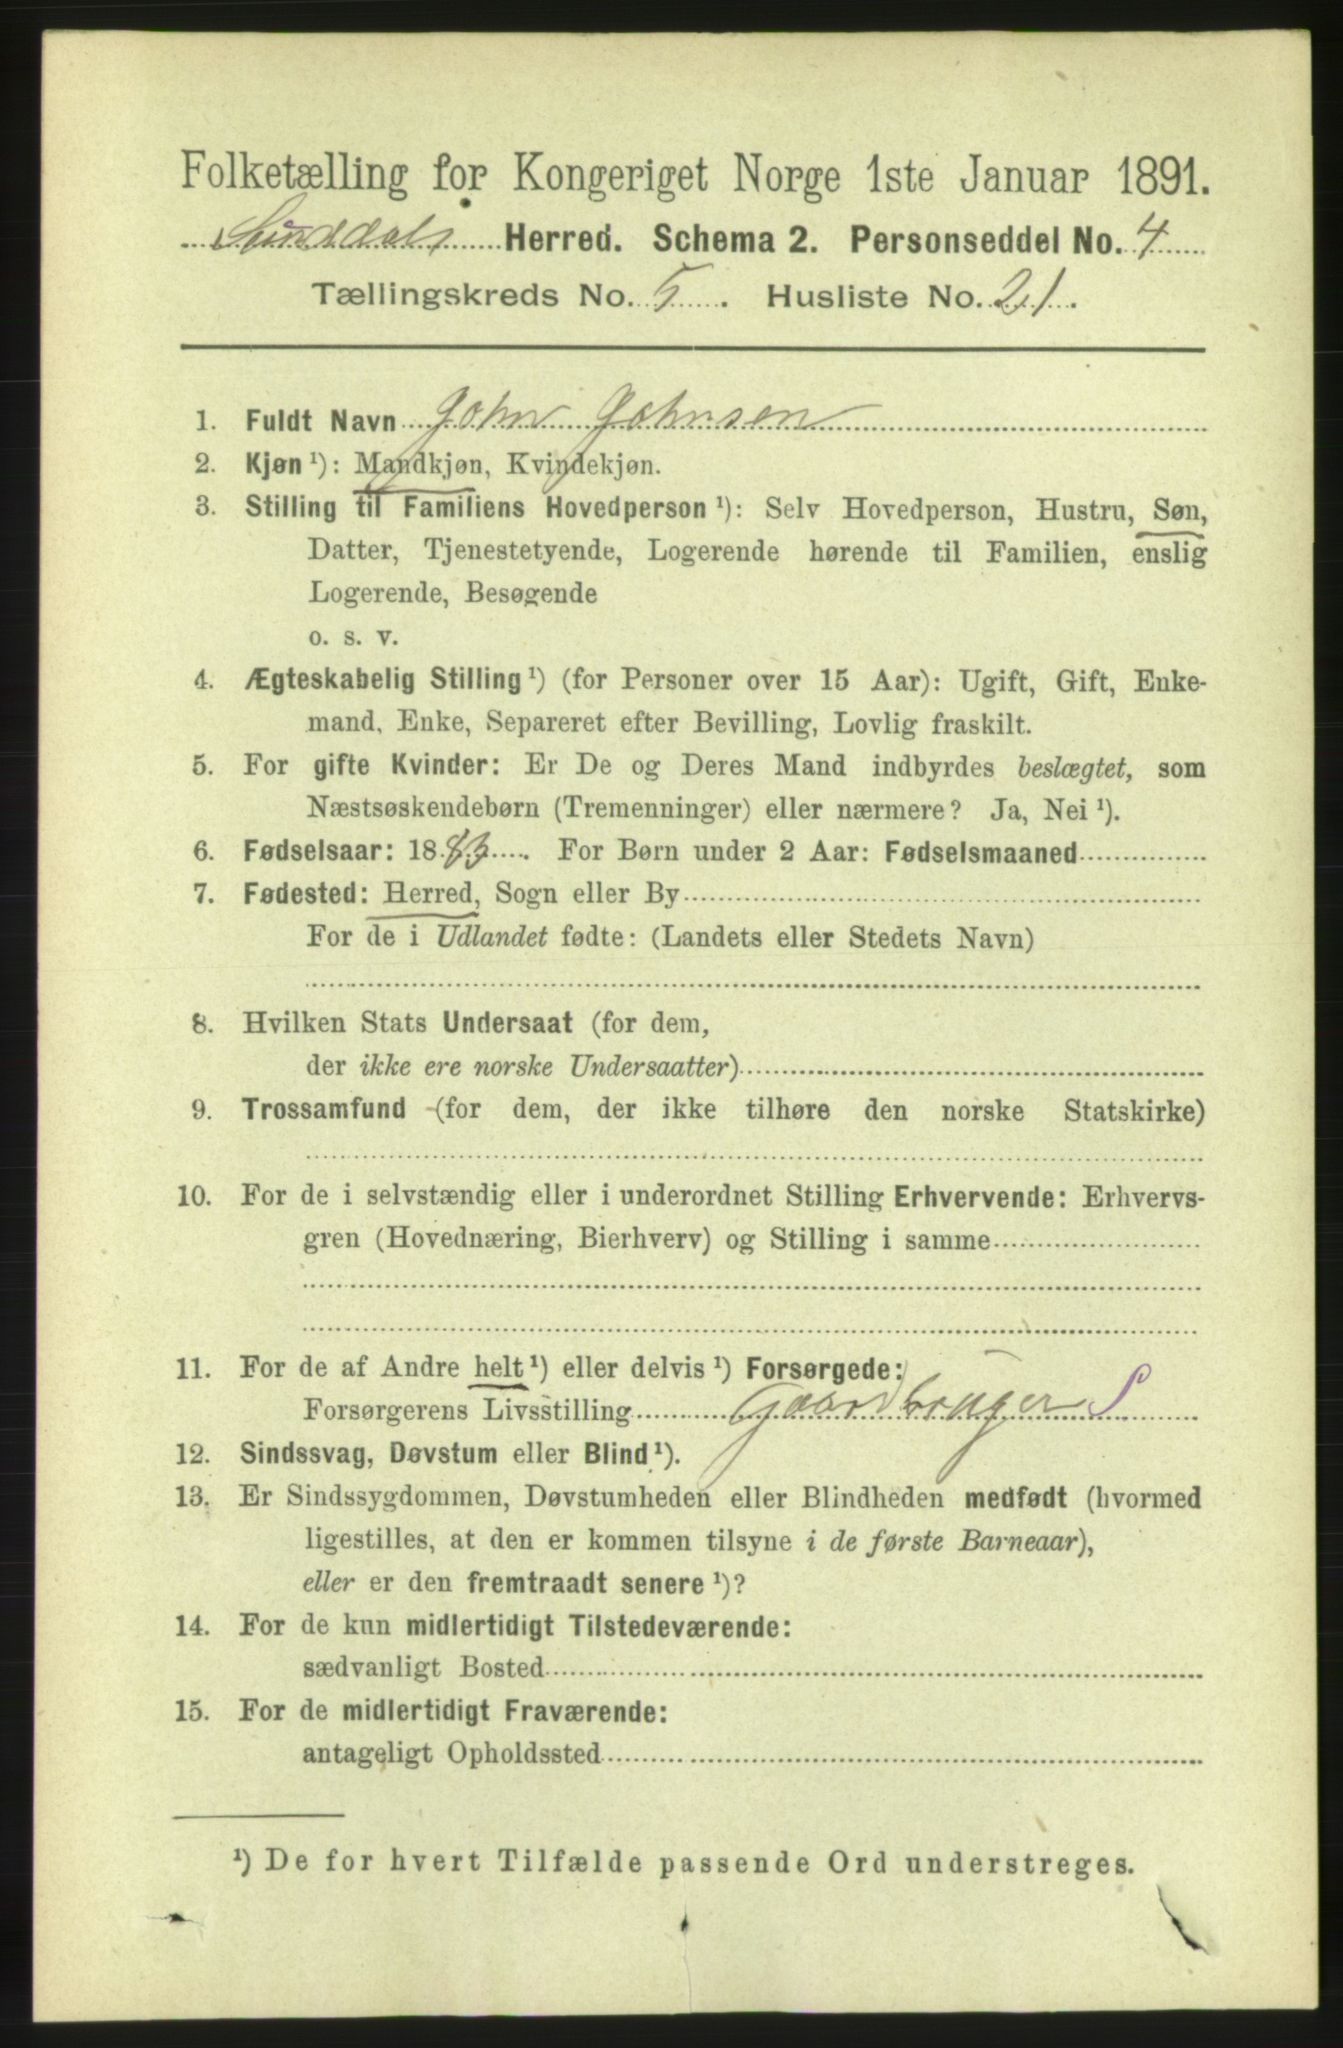 Folketælling for Kongeriget Norge 1ste Januar 1891.
Sunddals Herred. Schema 2. Personseddel No. 4
Tællingskreds No. 5. Husliste No. 21.
1. Fuldt Navn John Johnsen
2. Kjøn ¹): Mandkjøn, Kvindekjøn.
3. Stilling til Familiens Hovedperson ¹): Selv Hovedperson, Hustru, Søn,
Datter, Tjenestetyende, Logerende hørende til Familien, enslig
Logerende, Besøgende
o. s. v.
4. Ægteskabelig Stilling ¹) (for Personer over 15 Aar): Ugift, Gift, Enke-
mand, Enke, Separeret efter Bevilling, Lovlig fraskilt.
5. For gifte Kvinder: Er De og Deres Mand indbyrdes beslægtet, som
Næstsøskendebørn (Tremenninger) eller nærmere? Ja, Nei ¹).
6. Fødselsaar: 1883. For Børn under 2 Aar: Fødselsmaaned
7. Fødested: Herred, Sogn eller By
For de i Udlandet fødte: (Landets eller Stedets Navn)
8. Hvilken Stats Undersaat (for dem,
der ikke ere norske Undersaatter)
9. Trossamfund (for dem, der ikke tilhøre den norske Statskirke)
10. For de i selvstændig eller i underordnet Stilling Erhvervende: Erhvervs-
gren (Hovednæring, Bierhverv) og Stilling i samme
11. For de af Andre helt ¹) eller delvis ¹) Forsørgede:
Forsørgerens Livsstilling Gaardbruger S
12. Sindssvag, Døvstum eller Blind ¹).
13. Er Sindssygdommen, Døvstumheden eller Blindheden medfødt (hvormed
ligestilles, at den er kommen tilsyne i de første Barneaar),
eller er den fremtraadt senere ¹)?
14. For de kun midlertidigt Tilstedeværende:
sædvanligt Bosted
15. For de midlertidigt Fraværende:
antageligt Opholdssted
¹) De for hvert Tilfælde passende Ord understreges.